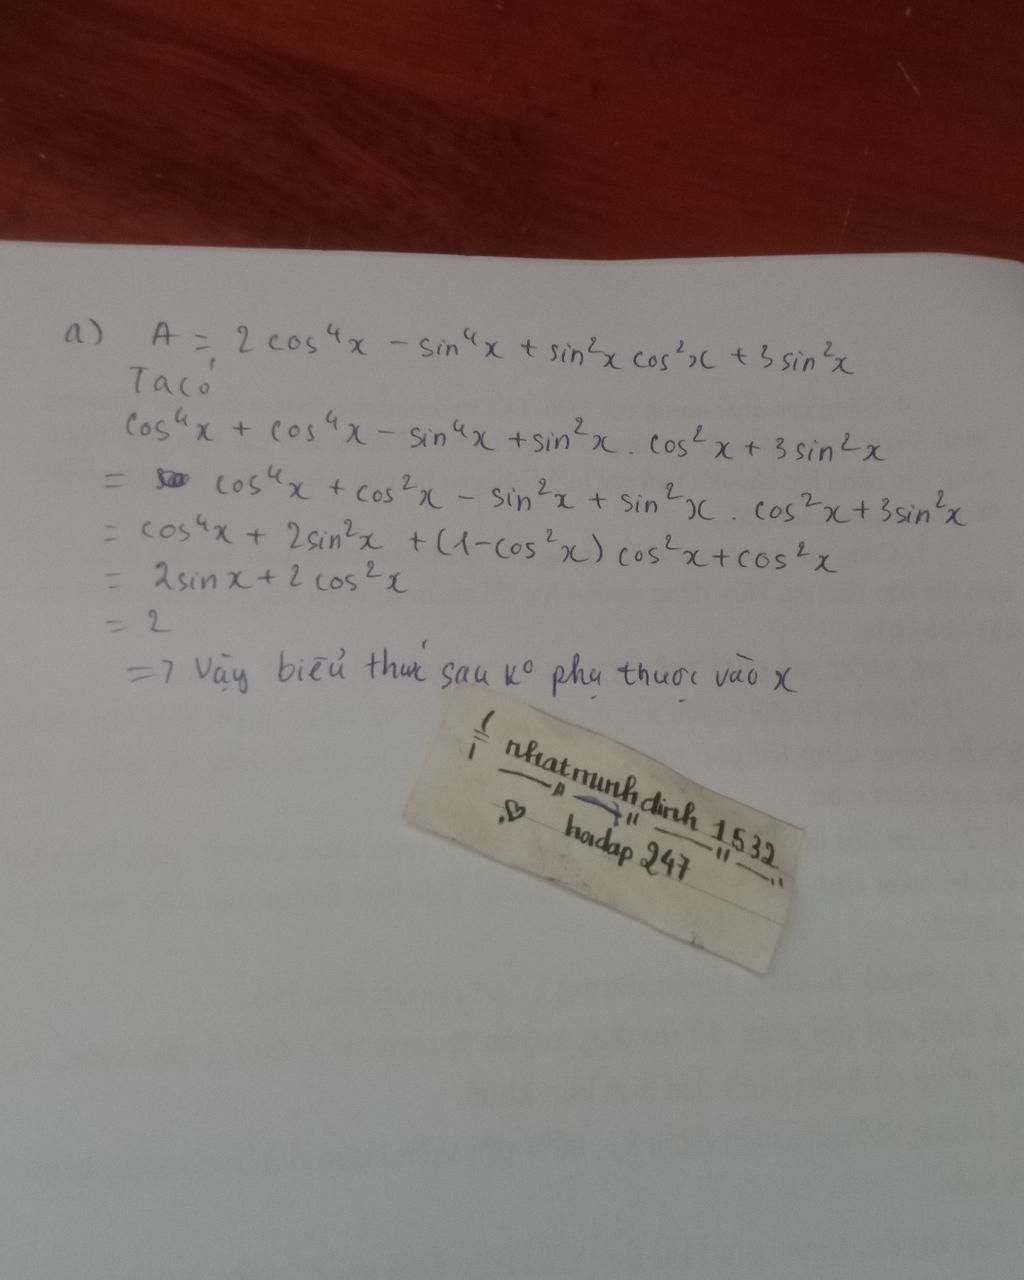 a) A = 2 cos⁴x - sin⁴x + sin²x cos²x + 3 sin²x
Ta có
cos⁴x + cos⁴x - sin⁴x + sin²x . cos²x + 3 sin²x
= cos⁴x + cos²x - sin²x + sin²x . cos²x + 3sin²x
= cos⁴x + 2sin²x + (1-cos²x) cos²x + cos²x
= 2sinx + 2cos²x
= 2
=> Vậy biểu thức sau ko phụ thuộc vào x
nhatminhdinh 1532
hoidap 247